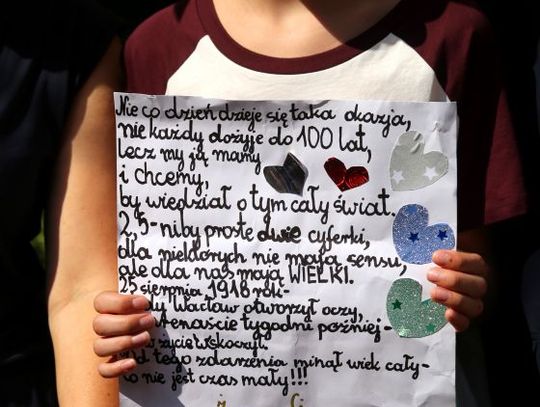 Nie co dzień dzieje się taka okazja,
nie każdy dożyje do 100 lat,
lecz my ją mamy
i chcemy,
by wiedział o tym cały świat.
2,5-niby proste dwie cyferki,
dla niektórych nie mają sensu,
ale dla nas mają WIELKI.
25 sierpnia 1918 rok-
dy Wacław otworzył oczy,
tenaście tygodni później-
w życie wskoczył.
Od tego zdarzenia minął wiek cały-
o nie jest czas mały!!!